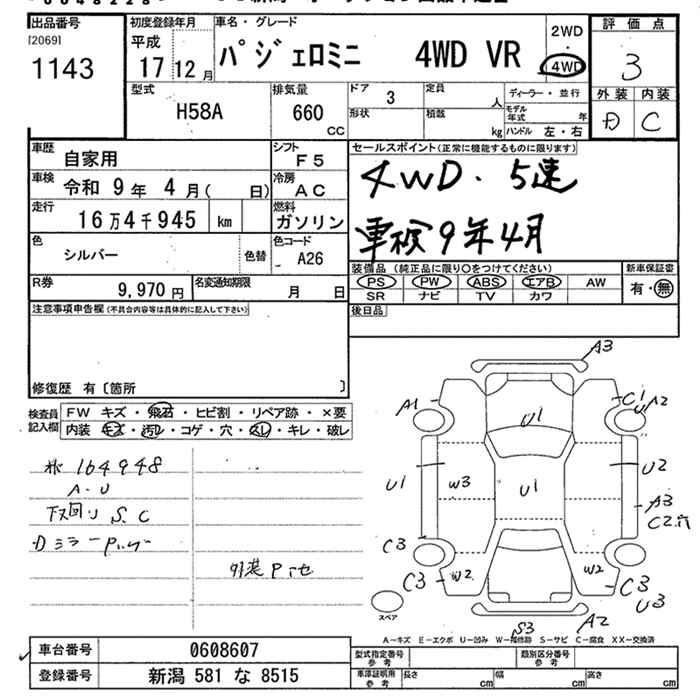 出品番号
[2069]
1143
初度登録年月
平成
17 12月
車名・グレード
パジェロミニ 4WD VR
2WD
・
4WD
評価点
3
外装 内装
D C
型式
H58A
排気量
660
CC
ドア
3
形状
定員
人
積載
kg
ディーラー・並行
モデル年式 年
ハンドル 左・右
車歴
自家用
シフト
F5
車検
令和 9年 4月( 日)
冷房
AC
走行
16万4千945 km
燃料
ガソリン
色
シルバー
色替
色コード
A26
R券
9,970円
名変通知期限
月 日
セールスポイント(正常に機能するものに限ります)
4WD・5速
車検9年4月
装備品 (純正品に限り○をつけてください)
PS PW ABS エアB AW
SR ナビ TV カワ
新車保証書
有・無
後日品
注意事項申告欄(不具合内容等は具体的に記入して下さい)
修復歴 有〔箇所 〕
検査員記入欄
FW キズ・飛石・ヒビ割・リペア跡・×要
内装 キズ・汚レ・コゲ・穴・スレ・キレ・破レ
164948
A・U
下回り S.C
外装
A3
A1
U1
C1
U A2
U1
W3
U1
U2
A3
C2穴
C3
C3
W2
W2
C3
U3
S3
A2
スペア
A-キズ E-エクボ U-凹み W-補修跡 S-サビ C-腐食 XX-交換済
車台番号
0608607
登録番号
新潟 581 な 8515
型式指定番号
参考
類別区分番号
参考
車庫証明用
参考
長さ cm
幅 cm
高さ cm